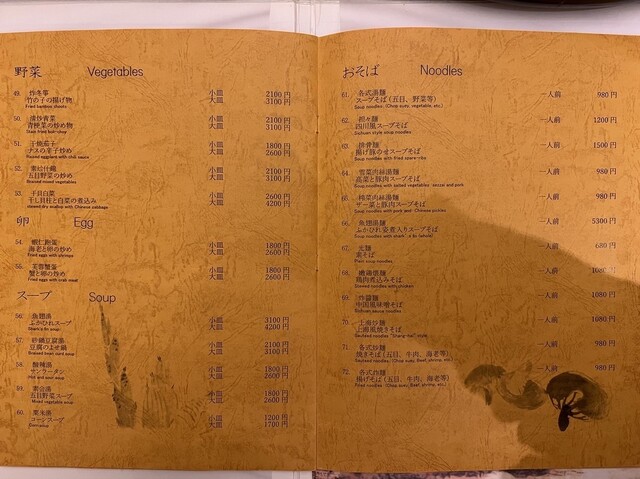 野菜 Vegetables
49. 炸冬筝 小皿 2100円
竹の子の揚げ物 大皿 3100円
Fried bamboo shoots
50. 清炒青菜 小皿 2100円
青梗菜の炒め物 大皿 3100円
51. 干焼茄子 小皿 1800円
ナスの辛子炒め 大皿 2600円
Braised eggplant with chili sauce
52. 素什錦 小皿 2100円
五目野菜の炒め 大皿 3100円
Braised mixed vegetables
53. 干貝白菜 小皿 2600円
干し貝柱と白菜の煮込み 大皿 4200円
Stewed dry scallop with Chinese cabbage
卵 Egg
54. 蝦仁炒蛋 小皿 1800円
海老と卵の炒め 大皿 2600円
Fried eggs with shrimps
55. 芙蓉蟹蛋 小皿 1800円
蟹と卵の炒め 大皿 2600円
Fried eggs with crab meat
スープ Soup
56. 魚翅湯 小皿 3100円
ふかひれスープ 大皿 4200円
Shark's fin soup
57. 砂鍋豆腐湯 小皿 2100円
豆腐のよせ鍋 大皿 3100円
Braised bean curd soup
58. 酸辣湯 小皿 1800円
サンラータン 大皿 2600円
Hot and sour soup
59. 素会湯 小皿 1800円
五目野菜スープ 大皿 2600円
Mixed vegetable soup
60. 粟米湯 小皿 1200円
コーンスープ 大皿 1700円
Corn soup
おそば Noodles
61. 各式湯麺 一人前 980円
スープそば(五目、野菜等)
Soup noodles (Chop suey, vegetable, etc.)
62. 担々麺 一人前 1200円
四川風スープそば
Sichuan style soup noodles
63. 排骨麺 一人前 1500円
揚げ豚のせスープそば
Soup noodles with fried spare-ribs
64. 雪菜肉絲湯麺 一人前 980円
高菜と豚肉スープそば
65. 搾菜肉絲湯麺 一人前 980円
ザー菜と豚肉スープそば
Soup noodles with pork and Chinese pickles
66. 魚翅湯麺 一人前 5300円
ふかひれ姿煮入りスープそば
67. 光麺 一人前 680円
素そば
Plain soup noodles
68. 嫩鶏煨麺 一人前 1080円
鶏肉煮込みそば
Stewed noodles with chicken
69. 炸醤麺 一人前 1080円
中国風味噌そば
70. 上海炒麺 一人前 1080円
上海風焼きそば
Sauteed noodles "Shang-hai" style
71. 各式炒麺 一人前 980円
焼きそば(五目、牛肉、海老等)
Sauteed noodles (Chop suey, Beef, shrimp, etc.)
72. 各式炸麺 一人前 980円
揚げそば(五目、牛肉、海老等)
Fried noodles (Chop suey, Beef, shrimp, etc.)